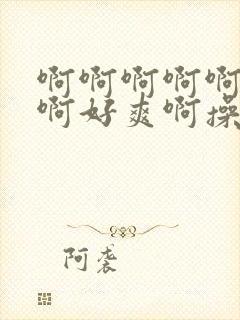 啊啊啊啊啊
啊好爽啊操
阿袭